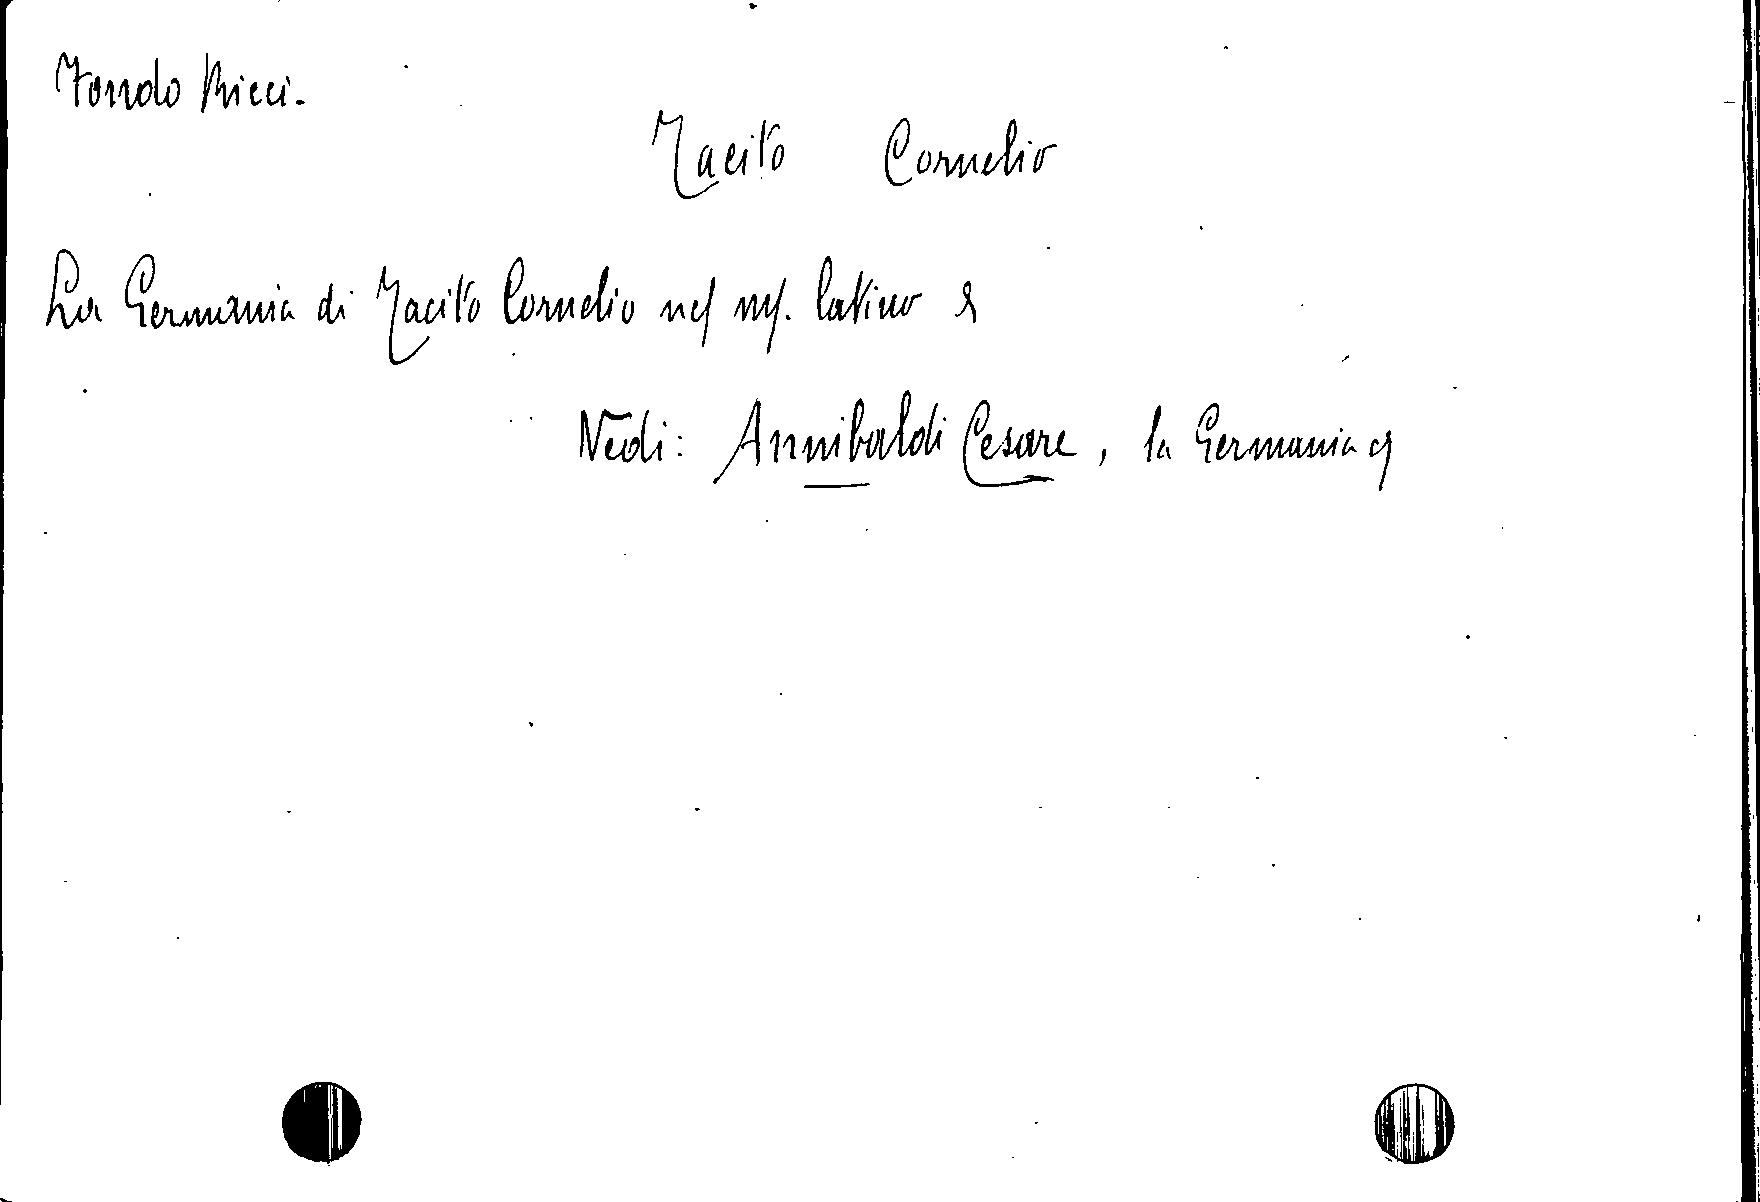 Fondo Ricci.
Tacito Cornelio
La Germania di Tacito Cornelio nel ms. latino &
Vedi: Annibaldi Cesare, la Germania